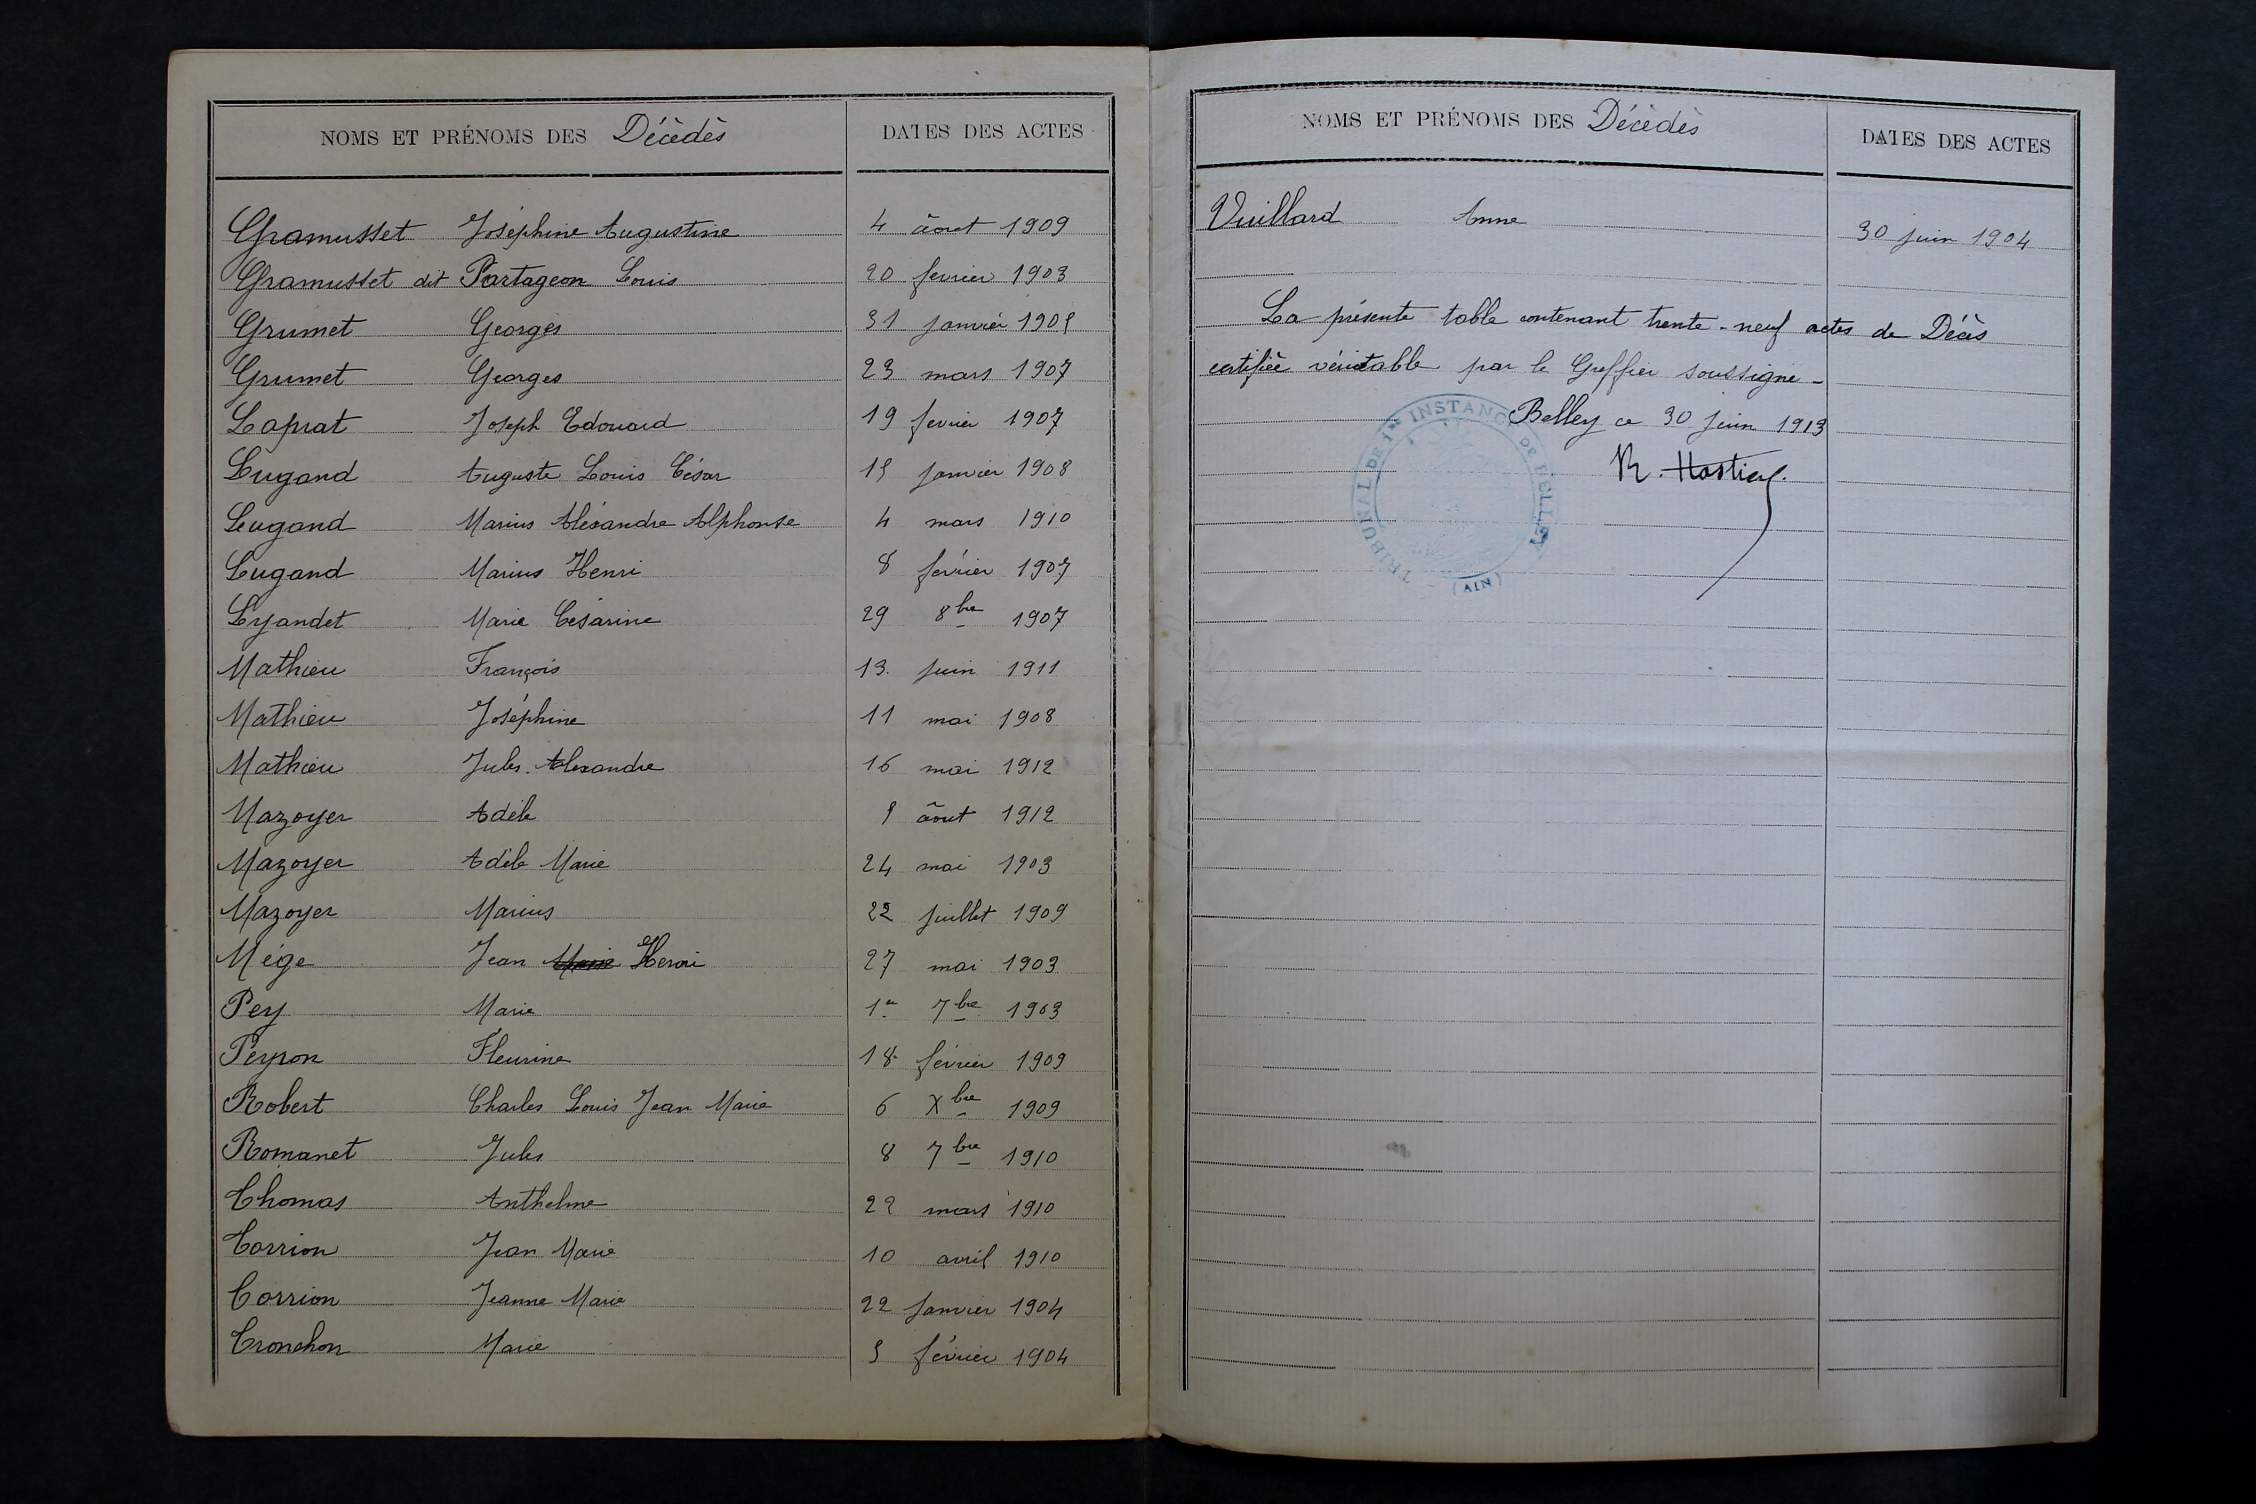 NOMS ET PRÉNOMS DES Décèdès DATES DES ACTES
Gramusset Joséphine Augustine 4 âout 1909
Gramusset dit Partageon Louis 20 fevrier 1903
Grumet Georges 31 janvier 1905
Grumet Georges 23 mars 1907
Laprat Joseph Edouard 19 fevrier 1907
Lugand Auguste Louis César 15 janvier 1908
Lugand Marius Aléxandre Alphonse 4 mars 1910
Lugand Marius Henri 8 février 1907
Lyandet Marie Césarine 29 8bre 1907
Mathieu François 13 juin 1911
Mathieu Joséphine 11 mai 1908
Mathieu Jules Alexandre 16 mai 1912
Mazoyer Adèle 5 âout 1912
Mazoyer Adèle Marie 24 mai 1903
Mazoyer Marius 22 juillet 1909
Mége Jean Marie Henri 27 mai 1903
Pey Marie 1er 7bre 1903
Peyron Fleurine 18 février 1909
Robert Charles Louis Jean Marie 6 Xbre 1909
Romanet Jules 8 7bre 1910
Thomas Anthelme 22 mars 1910
Torrion Jean Marie 10 avril 1910
Torrion Jeanne Marie 22 Janvier 1904
Tronchon Marie 5 février 1904
NOMS ET PRÉNOMS DES Décèdès DATES DES ACTES
Vuillard Anne 30 juin 1904
La présente table contenant trente-neuf actes de Décès
certifiée véritable par le Greffier soussigné -
Belley ce 30 juin 1913
TRIBUNAL DE 1re INSTANCE DE BELLEY
(AIN)